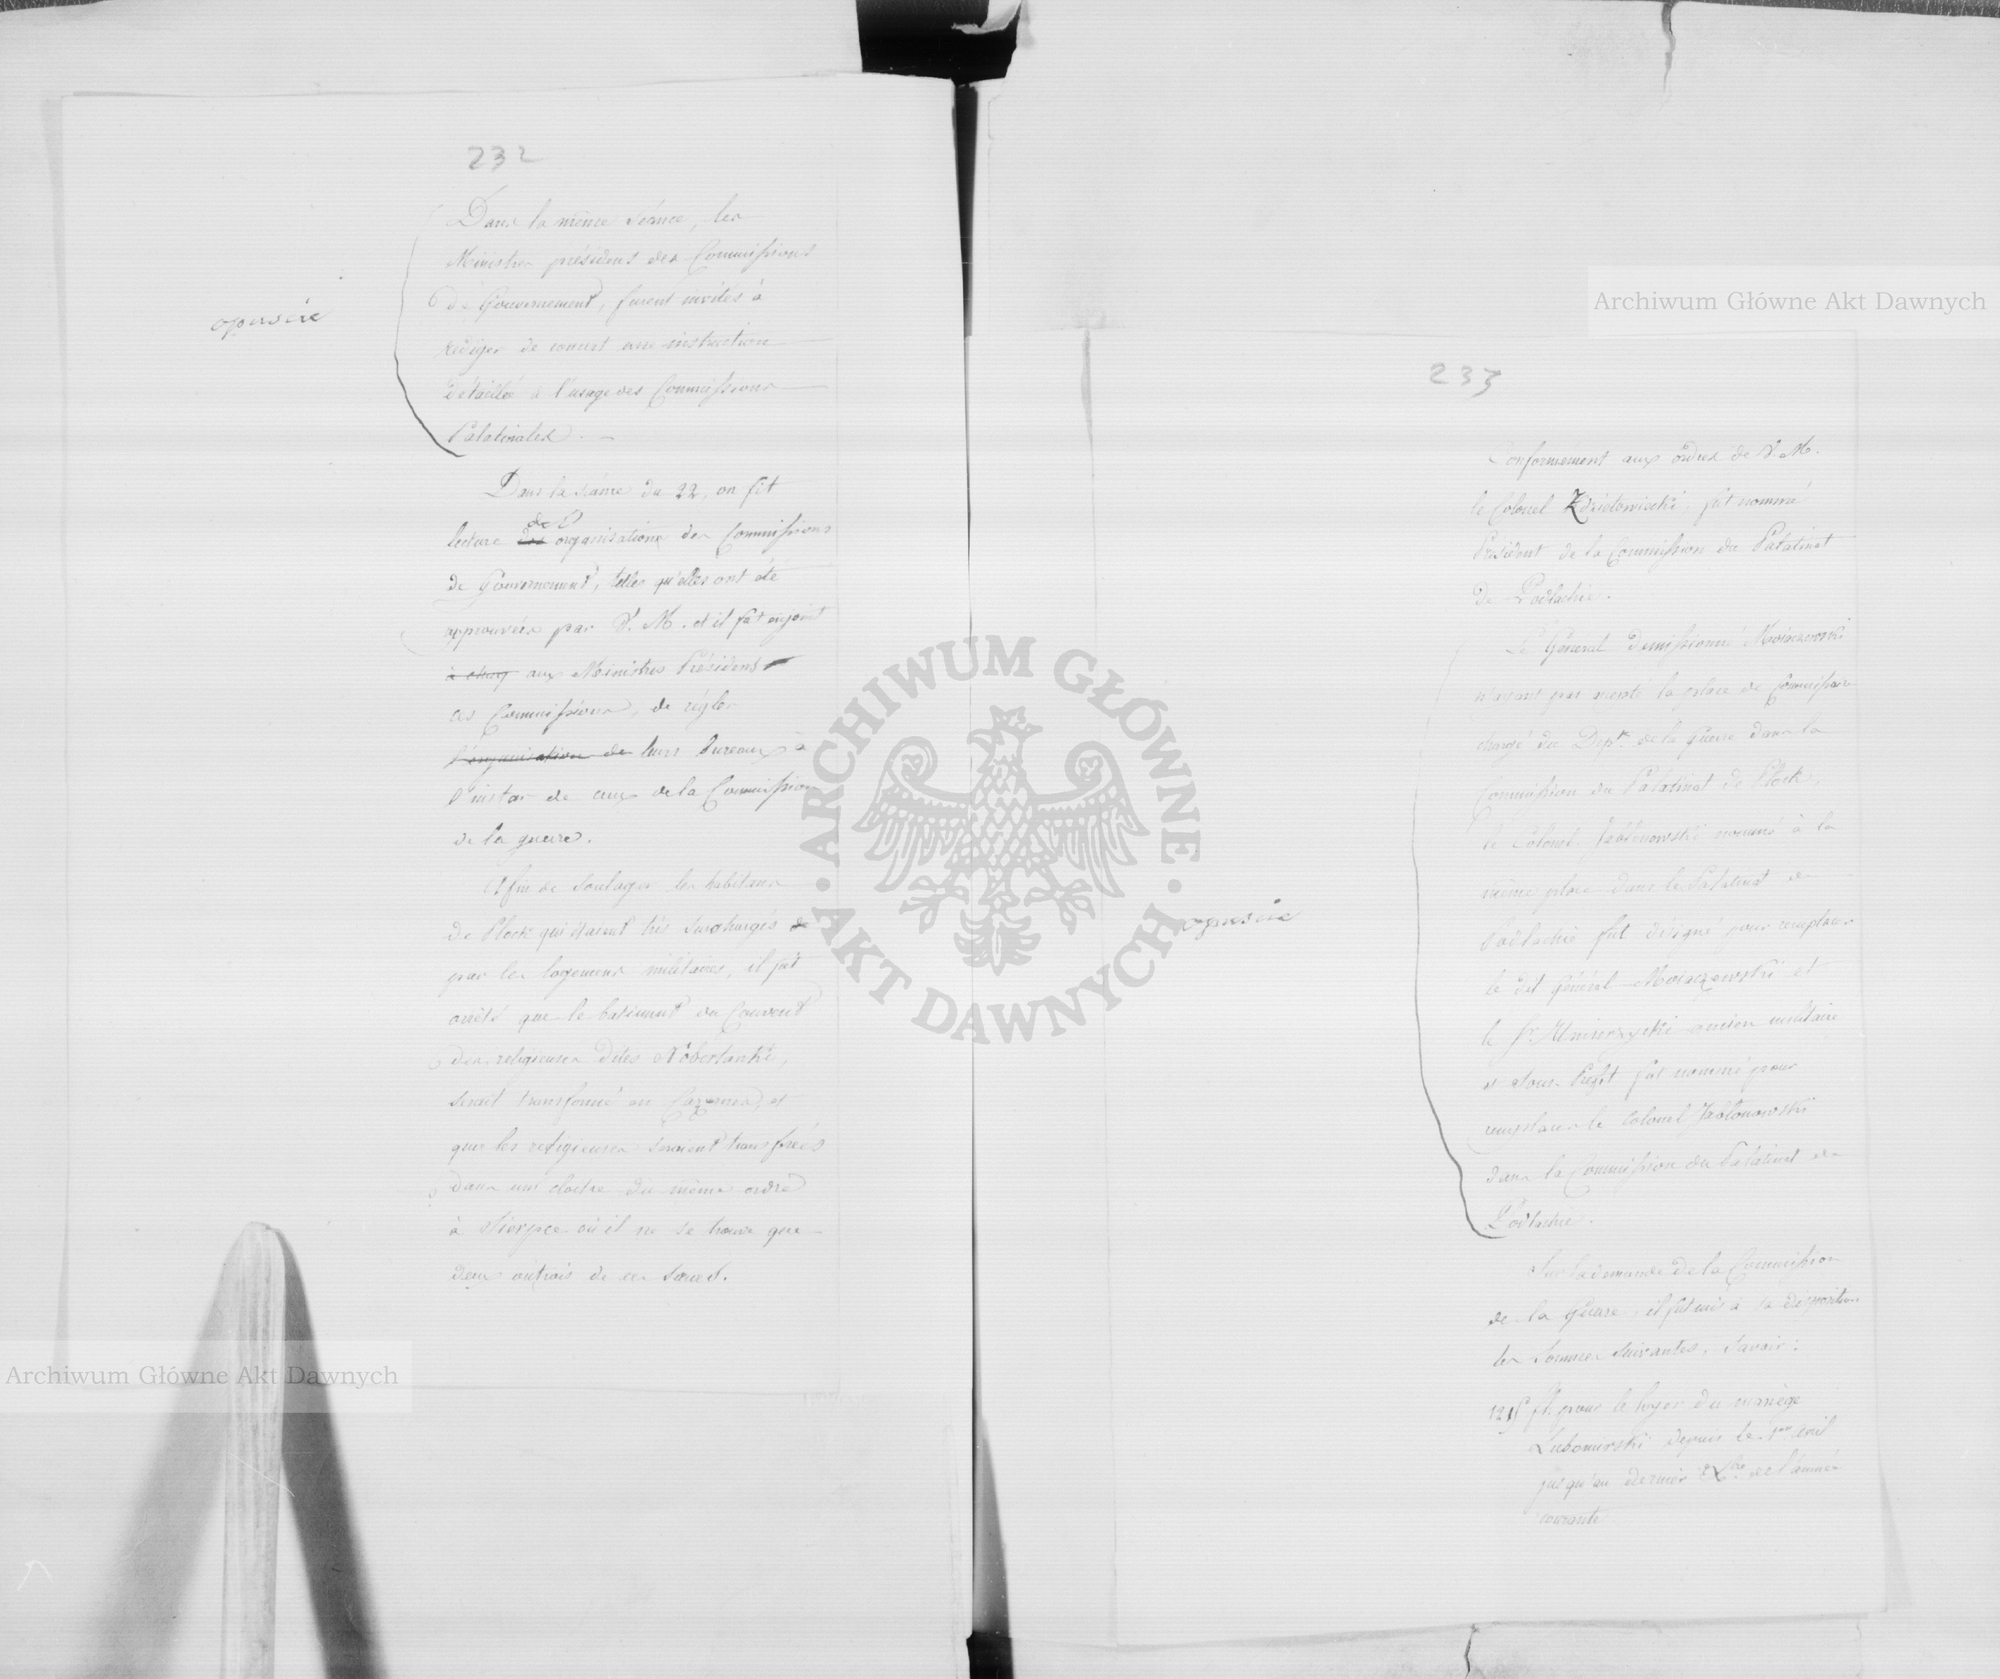 232
Dans la même séance, les
Ministres présidens des Commissions
de Gouvernement, furent invités à
rediger de concert une instruction
détaillée à l'usage des Commissions
Palatinales. —
opuscić
Dans la séance du 22, on fit
lecture des de l' organisations des Commissions
de Gouvernement, telles qu'elles ont été
approuvées par S. M. et il fut enjoint
à chaq aux Ministres Présidens
ces Commissions, de régler
l'organisation de leurs bureaux à
l'instar de ceux de la Commission
de la guerre.
Afin de soulager les habitans
de Plock qui étaient très surchargés de
par les logemens militaires, il fut
arrêté que le batiment du Couvent
des religieuses dites Norbertanki,
serait transformé en Cazerne, et
que les religieuses seraient transférés
dans un cloitre du même ordre
à Sierpce où il ne se trouve que
deux ou trois de ces sœurs.
233
Conformement aux ordres de S. M.
le Colonel fut nommé
Président de la Commission du Palatinat
de Podlachie.
Le Général demissionné
n'ayant pas accepté la place de Commissaire
chargé du Dept. de la Guerre dans la
Commission du Palatinat de Plock,
le Colonel Jabłonowski nommé à la
même place dans le Palatinat de
Podlachie fut désigné pour remplacer
le dit Général et
le Sr. ancien militaire
et Sous-Préfet fut nommé pour
remplacer le Colonel Jabłonowski
dans la Commission du Palatinat de
Podlachie.
opuscić
Sur la demande de la Commission
de la Guerre, il fut mis à sa disposition
les sommes suivantes, savoir:
fl. pour le loyer du manège
Lubomirski depuis le 1er avril
jusqu'au dernier Xbre de l'année
courante
Archiwum Główne Akt Dawnych
Archiwum Główne Akt Dawnych
ARCHIWUM GŁÓWNE
AKT DAWNYCH